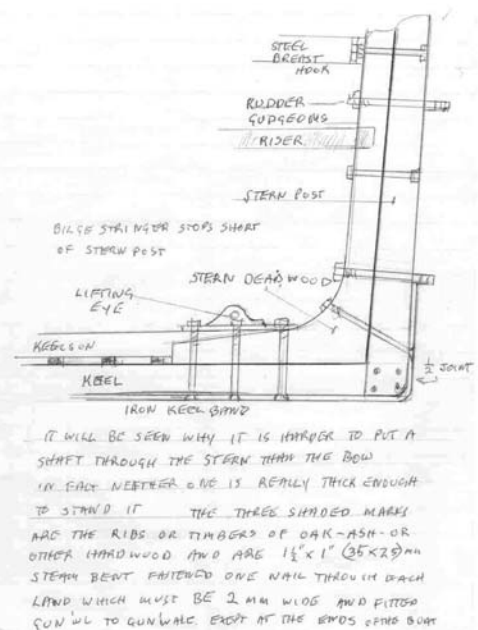 STEEL
BREAST
HOOK
RUDDER
GUDGEONS
RISER
STERN POST
BILGE STRINGER STOPS SHORT
OF STERN POST
STERN DEADWOOD
LIFTING
EYE
KEELSON
KEEL
½ JOINT
IRON KEEL BAND
IT WILL BE SEEN WHY IT IS HARDER TO PUT A
SHAFT THROUGH THE STERN THAN THE BOW
IN FACT NEITHER ONE IS REALLY THICK ENOUGH
TO STAND IT THE THREE SHADED MARKS
ARE THE RIBS OR TIMBERS OF OAK-ASH-OR
OTHER HARDWOOD AND ARE 1½" x 1" (35x25) MM
STEAM BENT FASTENED ONE NAIL THROUGH EACH
LAND WHICH MUST BE 2 MM WIDE AND FITTED
GUN'WL TO GUN'WALE EXCEPT AT THE ENDS OF THE BOAT